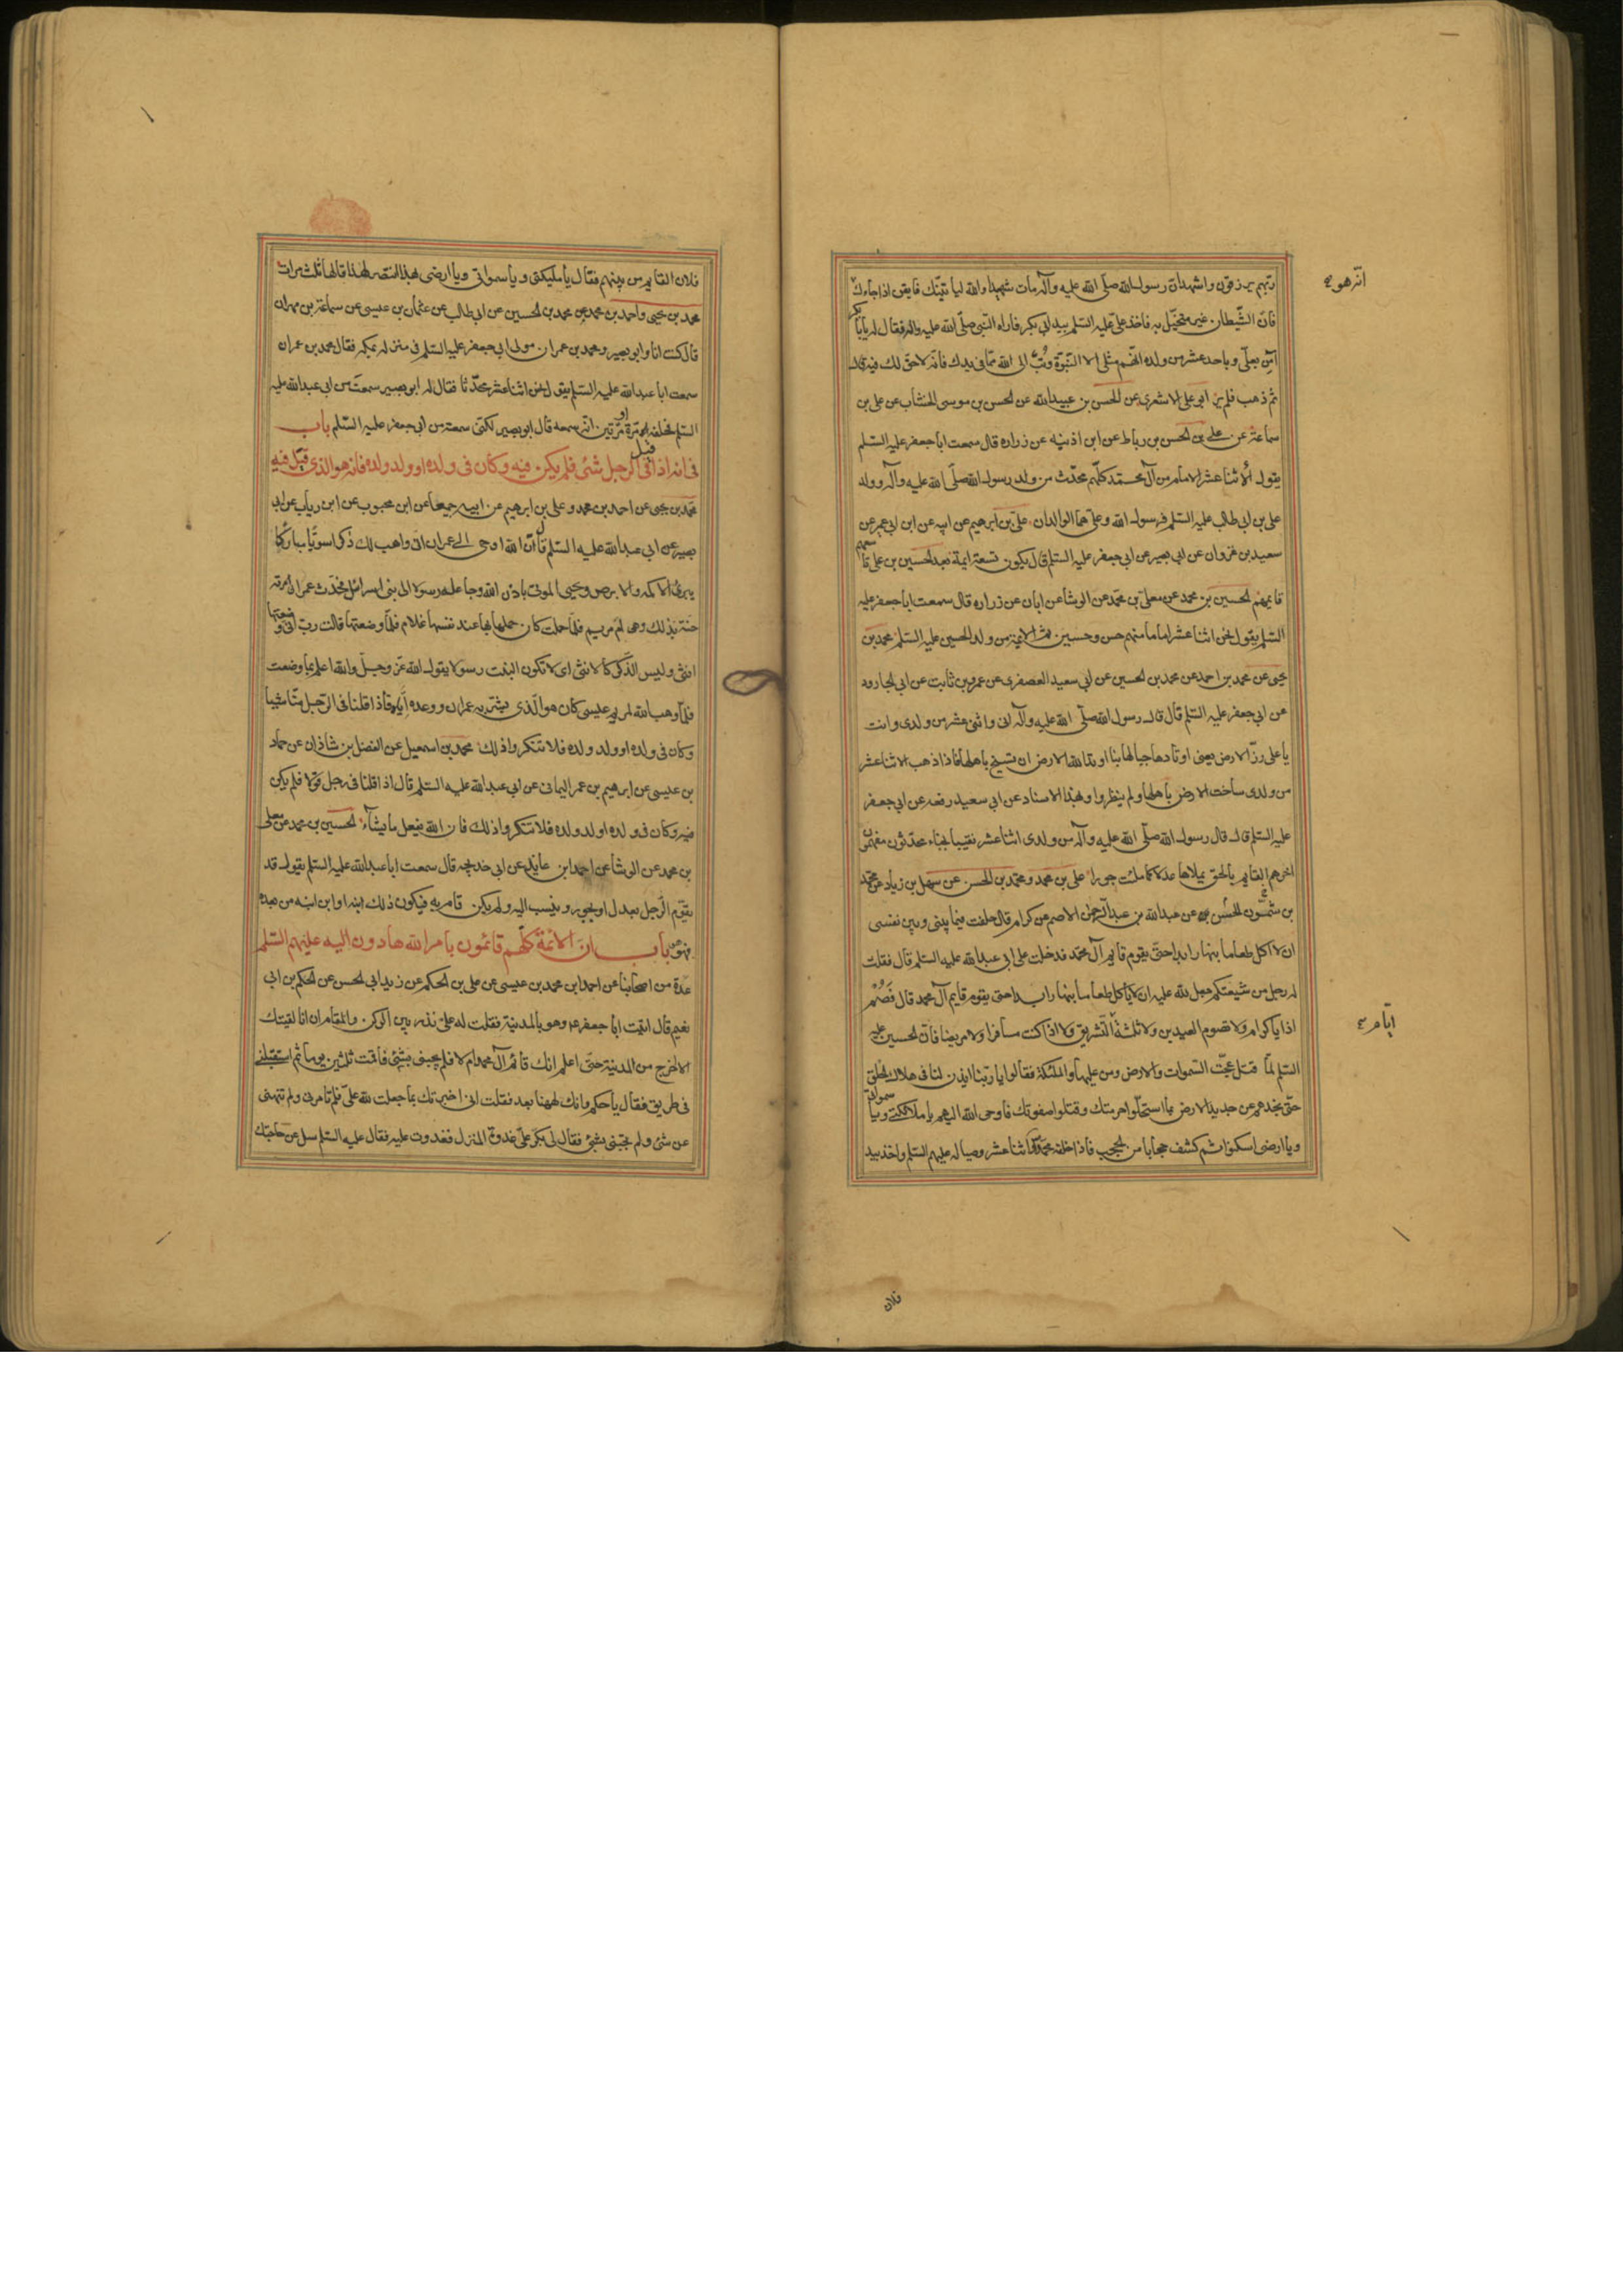 ربهم يرزقون واشهد ان رسول الله صلّى الله عليه وآله مات شهيدا والله لياتينّك فايقن اذا جاءك
انّه هو
فانّ الشّيطان غير متخيّل به فاخذ علىّ عليه السّلم بيد ابى بكر فاراه النّبى صلّى الله عليه واله فقال له يا ابا بكر
آمن بعلىّ وباحد عشر من ولده انّهم مثلى الا النّبوّة وتُب الى الله ممّا فى يدك فانّه لا حقّ لك فيه قال
ثم ذهب فلم ير ابى على الاشعرى عن الحسن بن عبيد الله عن الحسن بن موسى الخشاب عن على بن
سماعة عن على بن الحسن بن رباط عن ابن اذينه عن زراره قال سمعت ابا جعفر عليه السّلم
يقول الاثنا عشر الامام من آل محمّد كلّهم محدّث من ولد رسول الله صلّى الله عليه وآله وولد
على بن ابى طالب عليه السّلم فرسول الله وعلىّ هما الوالدان على بن ابرهيم عن ابيه عن ابن ابى عمير عن
سعيد بن غزوان عن ابى بصير عن ابى جعفر عليه السّلم قال يكون تسعة ايمة بعد الحسين بن على تاسعهم
قايمهم الحسين بن محمد عن معلّى بن محمّد عن الوشا عن ابان عن زراره قال سمعت ابا جعفر عليه
السّلم يقول نحن اثنا عشر اماما منهم حسن وحسين ثم الايمة من ولد الحسين عليه السّلم محمد بن
يحيى عن محمد بن احمد عن محمد بن الحسين عن ابى سعيد العصفرى عن عمرو بن ثابت عن ابى الجارود
عن ابى جعفر عليه السّلم قال قال رسول الله صلّى الله عليه وآله انى واثنى عشر من ولدى وانت
يا على رزّ الارض يعنى اوتادها جبالها بنا اوتد الله الارض ان تسيخ باهلها فاذا ذهب الاثنا عشر
من ولدى ساخت الارض باهلها ولم ينظروا وبهذا الاسناد عن ابى سعيد رفعه عن ابى جعفر
عليه السّلم قال قال رسول الله صلّى الله عليه وآله من ولدى اثنا عشر نقيبا نجباء محدّثون مفهمون
اخرهم القايم بالحق يملاها عدلا كما ملئت جورا على بن محمد ومحمّد بن الحسن عن سهل بن زياد عن محمّد
بن الحسن بن شمّون عن عبد الله بن عبد الرّحمن الاصم عن كرام قال حلفت فيما بينى وبين نفسى
ان لا اكل طعاما بنهار ابدا حتّى يقوم قايم آل محمّد فدخلت على ابى عبد الله عليه السلم قال فقلت
له رجل من شيعتكم جعل لله عليه ان لا ياكل طعاما بنهار ابدا حتى يقوم قايم آل محمد قال فَصُمْ
اذا يا كرام ولا تصوم العيدين ولا ثلثة التّشريق ولا اذا كنت مسافرا ولا مريضا فانّ الحسين عليه
ايّام
السّلم لمّا قتل عجّت السّموات والارض ومن عليها والملئكة فقالوا يا ربّنا ايذن لنا فى هلاك الخلق
حتّى نجدهم عن جديد الارض بما استحلّوا حرمتك وقتلوا صفوتك فاوحى الله اليهم يا ملائكتى ويا سمواتى
ويا ارضى اسكنوا ثم كشف حجابا من الحجب فاذا خلفه محمّد واثنا عشر وصيا له عليهم السّلم واخذ بيد
فلان
فلان القايم من بينهم فقال يا مليكتى ويا سمواتى ويا ارضى بهذا انتصر لهذا قالها ثلث مرات
محمد بن يحيى واحمد بن محمد عن محمد بن الحسين عن ابى طالب عن عثمان بن عيسى عن سماعة بن مهران
قال كنت انا وابو بصير ومحمد بن عمران مولى ابى جعفر عليه السّلم فى منزله بمكه فقال محمد بن عمران
سمعت ابا عبد الله عليه السّلم يقول نحن اثنا عشر محدّثا فقال له ابو بصير سمعت من ابى عبد الله عليه
السّلم فحلّفه مرّة او مرّتين انّه سمعه قال ابو بصير لكنّى سمعته من ابى جعفر عليه السّلم باب
فى انه اذا قيل فى الرجل شئ فلم يكن فيه وكان فى ولده او ولد ولده فانه هو الذى قيل فيه
محمّد بن يحيى عن احمد بن محمد وعلى بن ابرهيم عن ابيه جميعا عن ابن محبوب عن ابن رياب عن ابى
بصير عن ابى عبد الله عليه السّلم قال انّ الله اوحى الى عمران انى واهب لك ذكرا سويّا مباركا
يبرئ الاكمه والابرص ويحيى الموتى باذن الله وجاعله رسولا الى بنى اسرائيل فحدّث عمران امرته
حنّة بذلك وهى امّ مريم فلمّا حملت كان حملها بها عند نفسها غلام فلمّا وضعتها قالت ربّ انى وضعتها
انثى وليس الذّكر كالانثى اى لا تكون البنت رسولا يقول الله عزّ وجلّ والله اعلم بما وضعت
فلمّا وهب الله لمريم عيسى كان هو الّذى بشّر به عمران ووعده ايّاه فاذا قلنا فى الرّجل منّا شيئا
وكان فى ولده او ولد ولده فلا تنكروا ذلك محمد بن اسمعيل عن الفضل بن شاذان عن حماد
بن عيسى عن ابرهيم بن عمر اليمانى عن ابى عبد الله عليه السّلم قال اذا قلنا فى رجل قولا فلم يكن
فيه وكان فى ولده او ولد ولده فلا تنكروا ذلك فان الله يفعل ما يشآء الحسين بن محمد عن معلى
بن محمد عن الوشا عن احمد ابن عايذ عن ابى خديجه قال سمعت ابا عبد الله عليه السّلم يقول قد
يقوم الرّجل بعدل او بجور وينسب اليه ولم يكن قام به فيكون ذلك ابنه او ابن ابنه من بعده
فهو هو باب ان الائمة كلّهم قائمون بامر الله هادون اليه عليهم السّلم
عدة من اصحابنا عن احمد ابن محمد بن عيسى عن على بن الحكم عن زيد ابى الحسن عن الحكم بن ابى
نعيم قال اتيت ابا جعفر ع وهو بالمدينة فقلت له علىّ نذر بين الركن والمقام ان انا لقيتك
الا اخرج من المدينة حتّى اعلم انك قائم آل محمد ام لا فلم يجبنى بشئ فاقمت ثلثين يوما ثم استقبلنى
فى طريق فقال يا حكم وانك لههنا بعد فقلت انى اخبرتك بما جعلت لله علىّ فلم تامرنى ولم تنهنى
عن شئ ولم تجبنى بشئ فقال لى بكّر علىّ غدوة المنزل فغدوت عليه فقال عليه السّلم سل عن حاجتك